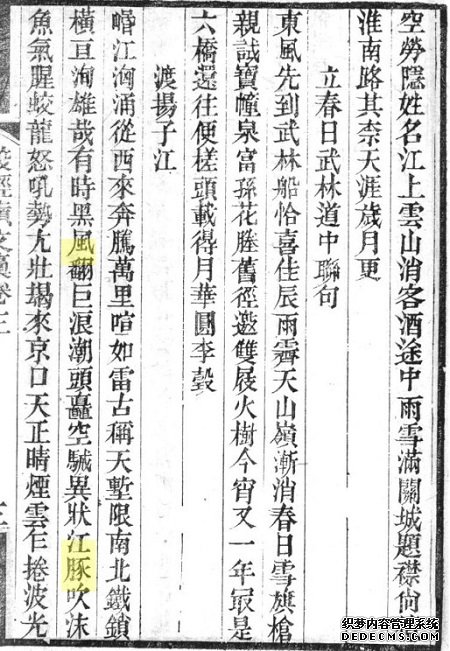 空勞隱姓名江上雲山消客酒途中雨雪滿關城題襟尙
淮南路其奈天涯歲月更
立春日武林道中聯句
東風先到武林船恰喜佳辰雨霽天山嶺漸消春日雪旗槍
親試寶幢泉富孫花塍舊徑邀雙屐火樹今宵又一年㝡是
六橋還往便槎頭載得月華圓李
渡揚子江
江洶涌從西來奔騰萬里喧如雷古稱天塹限南北鐵鎖
橫亘洵雄哉有時黑風翻巨浪潮頭矗空駴異狀江豚吹沫
魚氣腥蛟龍怒吼勢尢壯朅來京口天正晴煙雲乍捲波光
织梦内容管理系统
DEDECMS.COM